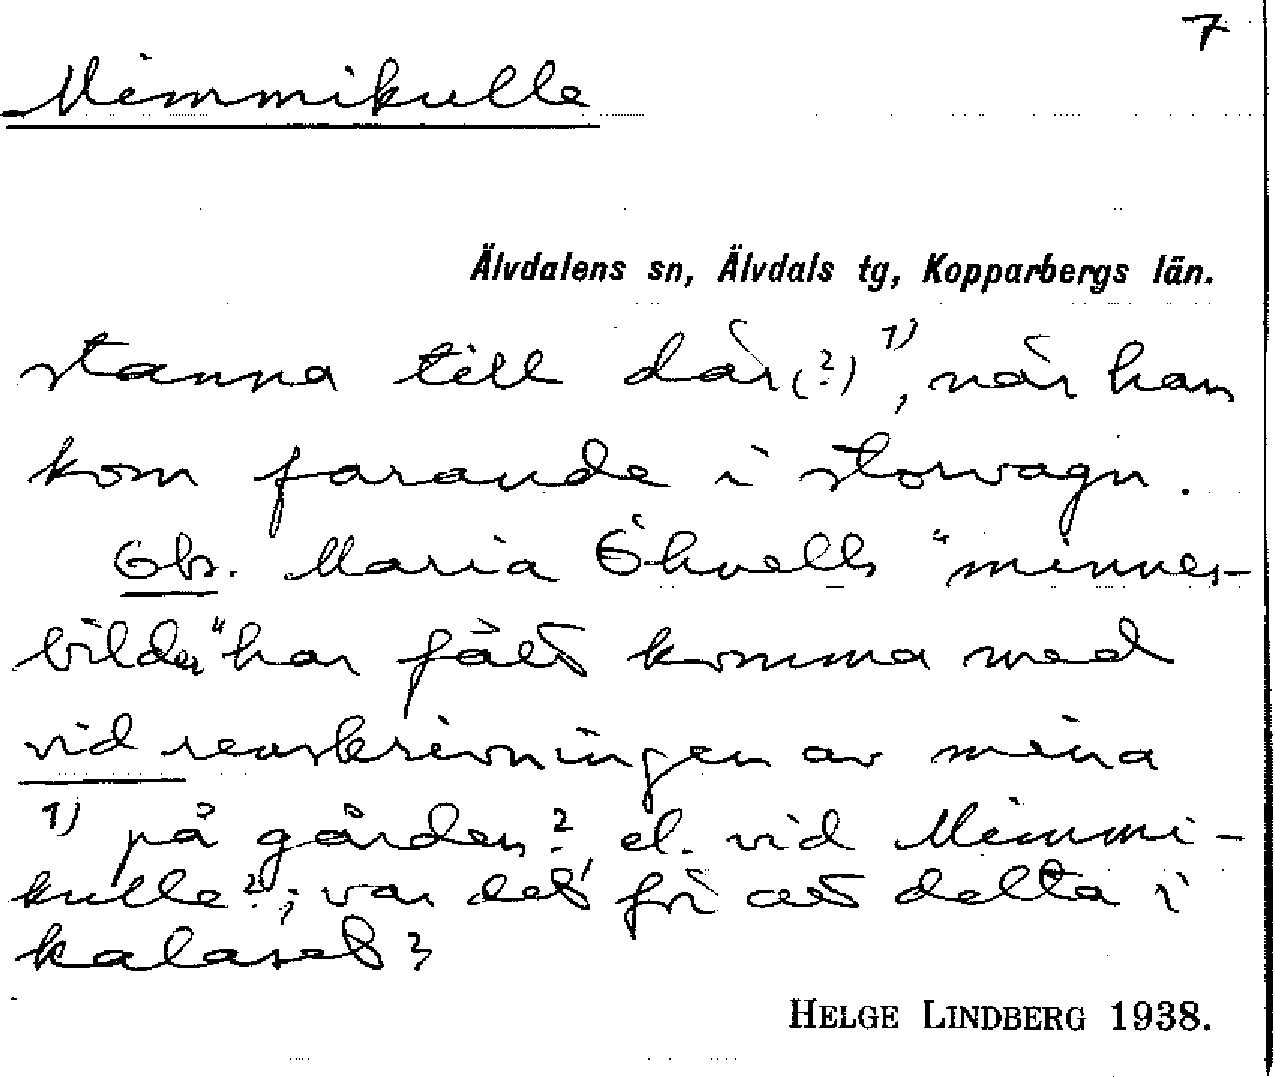 7
Mimmikulle
Älvdalens sn, Älvdals tg, Kopparbergs län.
stanna till där (?) 1), när han
kom farande i storvagn.
Obs. Maria Öhvalls "minnes-
bilder" har fått komma med
vid renskrivningen av mina
1) på gården? el. vid Mimmi-
kulle?; var det för att delta i
kalaset?
HELGE LINDBERG 1938.